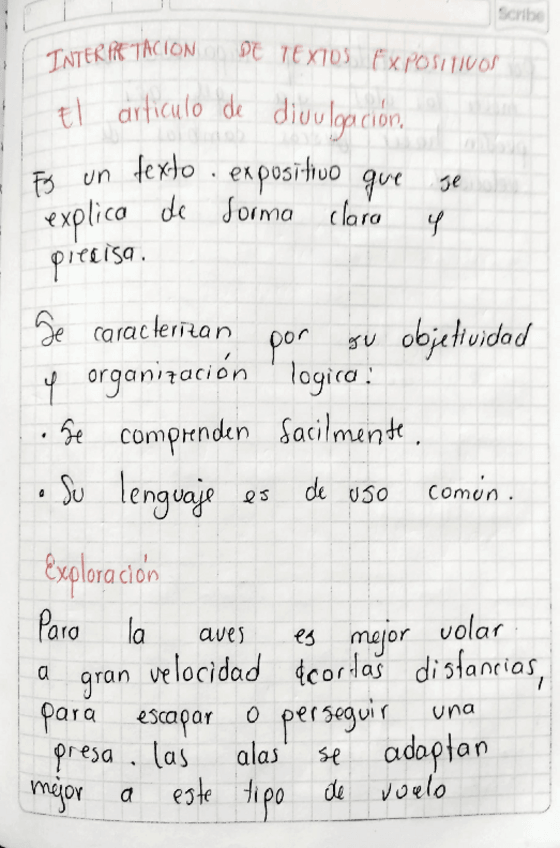 Scribe
INTERPRETACION DE TEXTOS EXPOSITIVOS
El articulo de divulgación.
Es un texto. expositivo que se
explica de forma clara y
precisa.
Se caracterizan por su objetividad
y organización logica:
• Se comprenden facilmente.
• Su lenguaje es de uso común.
Exploración
Para la aves es mejor volar
a gran velocidad cortas distancias,
para escapar o perseguir una
presa. las alas se adaptan
mejor a este tipo de vuelo